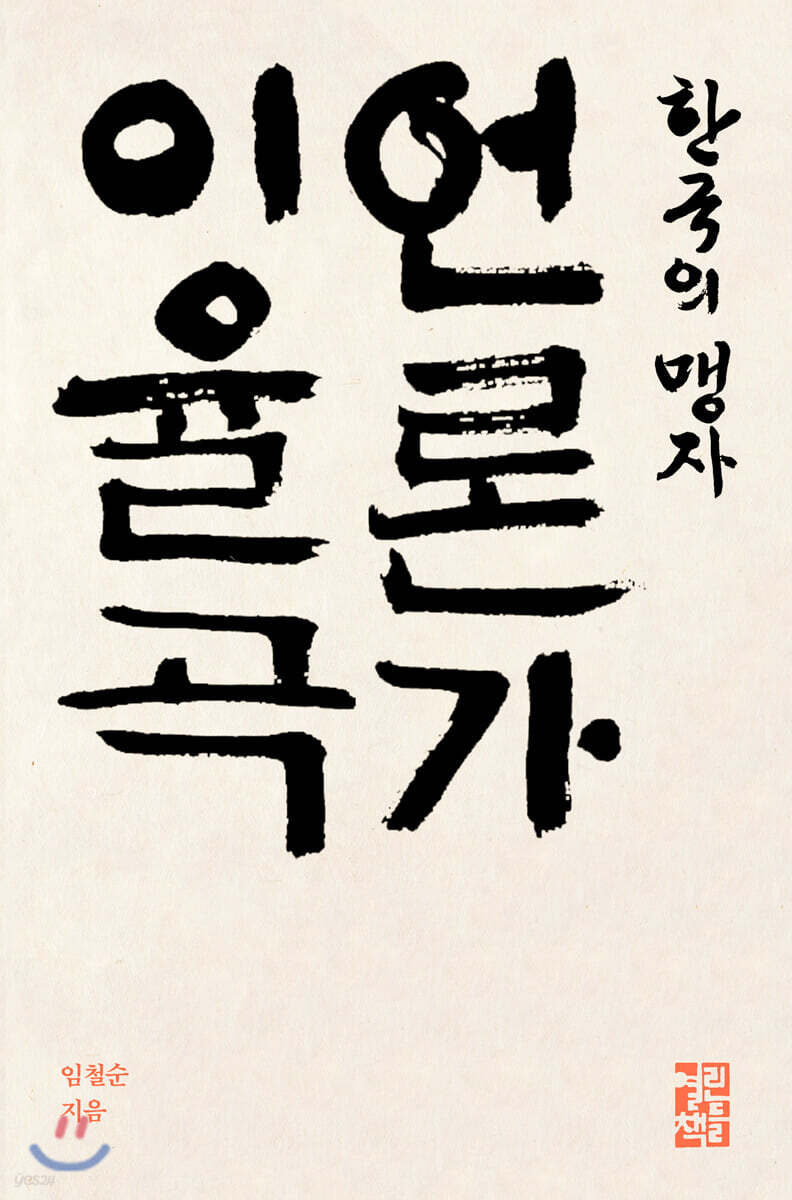 한국의 맹자
언론가
이율곡
임철순
지음
열린책들
yes24